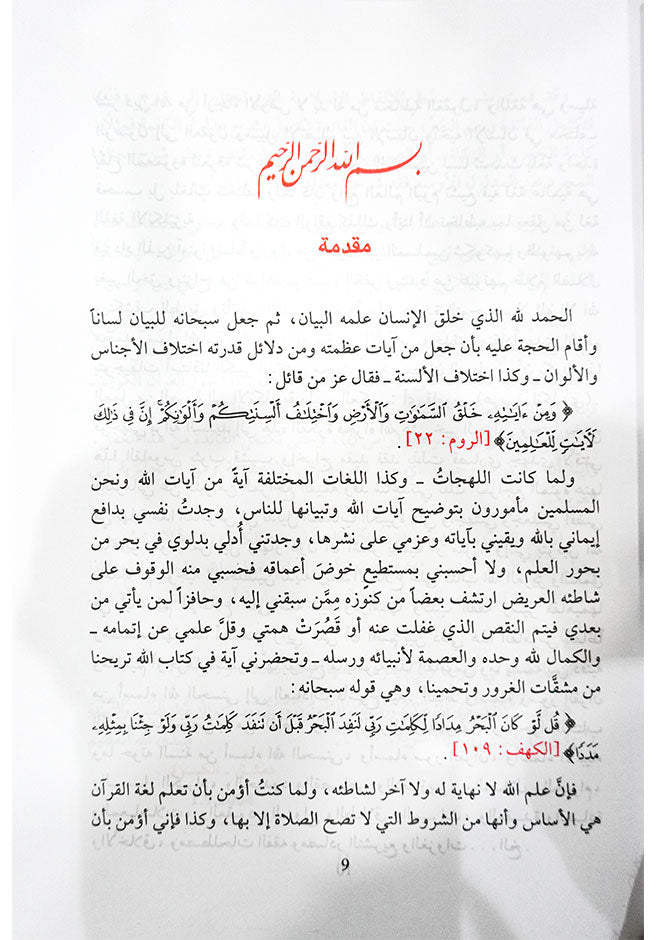 بسم الله الرحمن الرحيم
مقدمة
الحمد لله الذي خلق الإنسان علمه البيان، ثم جعل سبحانه للبيان لساناً
وأقام الحجة عليه بأن جعل من آيات عظمته ومن دلائل قدرته اختلاف الأجناس
والألوان ـ وكذا اختلاف الألسنة ـ فقال عز من قائل:
﴿ وَمِنْ ءَايَٰتِهِۦ خَلْقُ ٱلسَّمَٰوَٰتِ وَٱلْأَرْضِ وَٱخْتِلَٰفُ أَلْسِنَتِكُمْ وَأَلْوَٰنِكُمْ ۚ إِنَّ فِى ذَٰلِكَ
لَءَايَٰتٍ لِّلْعَٰلِمِينَ﴾ [الروم: ٢٢].
ولما كانت اللهجاتُ ـ وكذا اللغات المختلفة آيةً من آيات الله ونحن
المسلمين مأمورون بتوضيح آيات الله وتبيانها للناس، وجدتُ نفسي بدافع
إيماني بالله ويقيني بآياته وعزمي على نشرها، وجدتني أُدلي بدلوي في بحر من
بحور العلم، ولا أحسبني بمستطيع خوضَ أعماقه فحسبي منه الوقوف على
شاطئه العريض ارتشف بعضاً من كنوزه مِمَّن سبقني إليه، وحافزاً لمن يأتي من
بعدي فيتم النقص الذي غفلت عنه أو قَصُرَتْ همتي وقلَّ علمي عن إتمامه ـ
والكمال لله وحده والعصمة لأنبيائه ورسله ـ وتحضرني آية في كتاب الله تريحنا
من مشقَّات الغرور وتحمينا، وهي قوله سبحانه:
﴿ قُل لَّوْ كَانَ ٱلْبَحْرُ مِدَادًا لِّكَلِمَٰتِ رَبِّى لَنَفِدَ ٱلْبَحْرُ قَبْلَ أَن تَنفَدَ كَلِمَٰتُ رَبِّى وَلَوْ جِئْنَا بِمِثْلِهِۦ
مَدَدًا﴾ [الكهف: ١٠٩].
فإنَّ علم الله لا نهاية له ولا آخر لشاطئه، ولما كنتُ أؤمن بأن تعلم لغة القرآن
هي الأساس وأنها من الشروط التي لا تصح الصلاة إلا بها، وكذا فإني أؤمن بأن
9